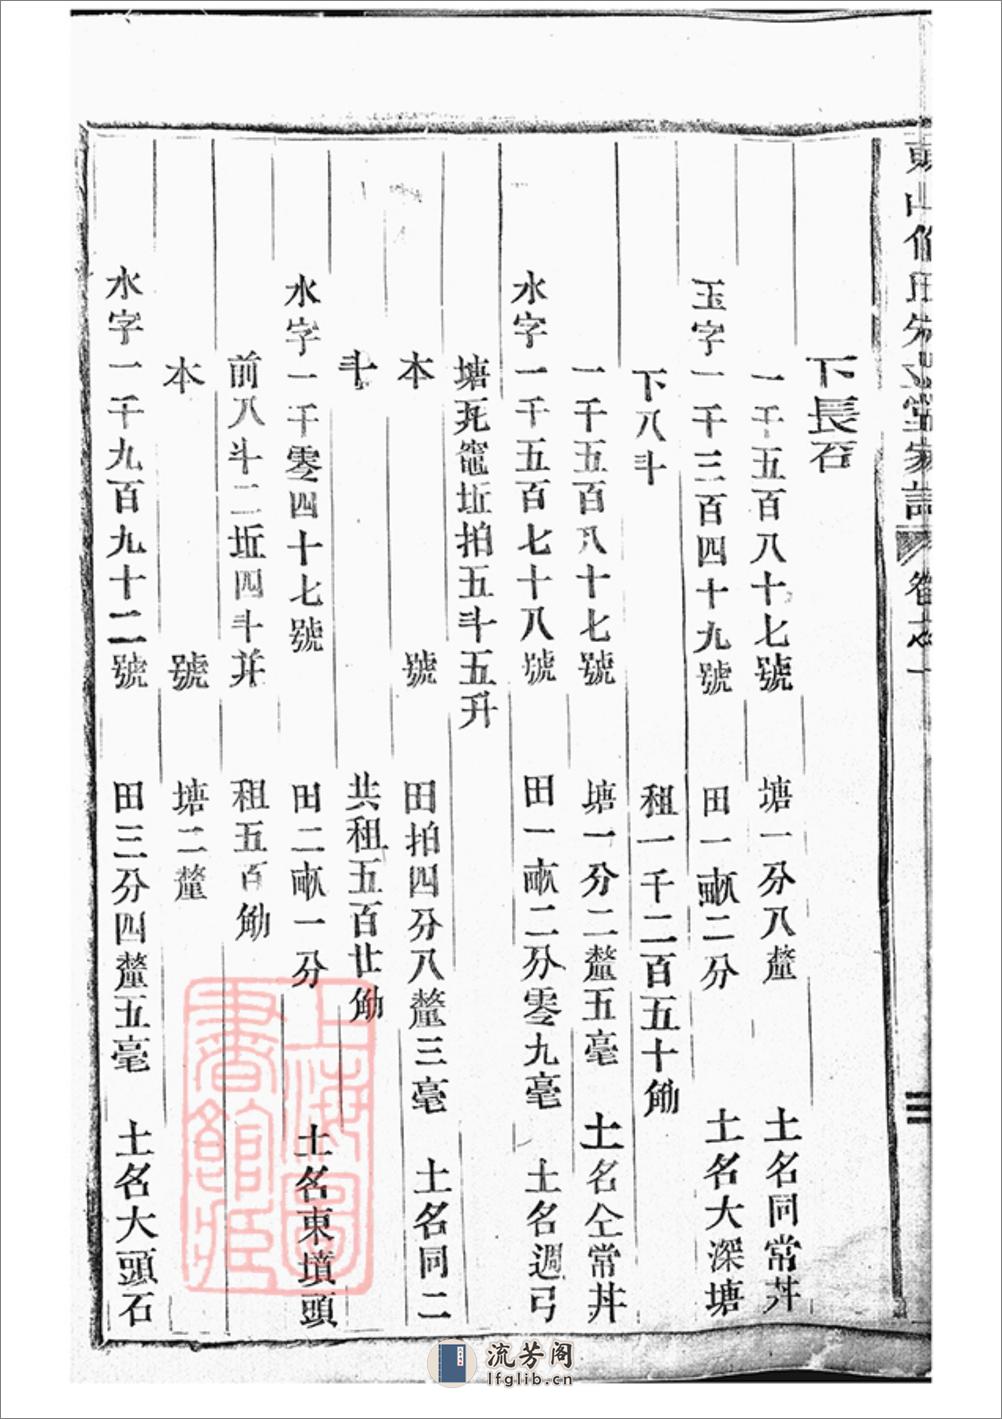 下長石
一千五百八十七號 塘一分八釐 土名同常丼
玉字一千三百四十九號 田一畝二分 土名大深塘
下八斗 租一千二百五十觔
一千五百八十七號 塘一分二釐五毫 土名仝常丼
水字一千五百七十八號 田一畝二分零九毫 土名週弓
塘死竈坵拍五斗五升
本 號 田拍四分八釐三毫 土名同二
斗 共租五百廿觔
水字一千零四十七號 田二畝一分 土名東墳頭
前八斗二坵四斗并 租五百觔
本 號 塘二釐
水字一千九百九十二號 田三分四釐五毫 土名大頭石
上海圖書館藏
流芳阁
lfglib.cn